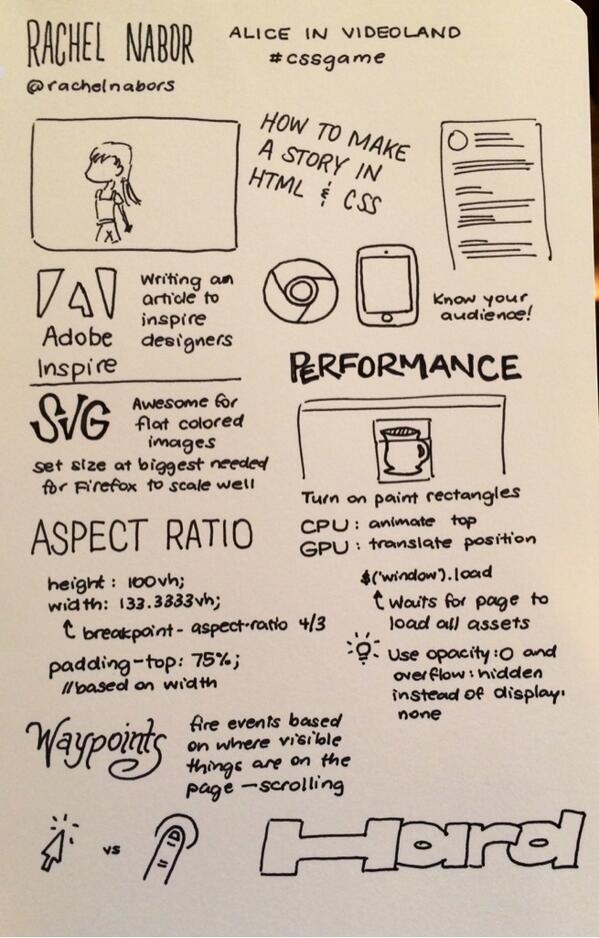 RACHEL NABOR
@rachelnabors
ALICE IN VIDEOLAND
#cssgame
HOW TO MAKE
A STORY IN
HTML & CSS
Adobe
Inspire
Writing an
article to
inspire
designers
Know your
audience!
SVG
Awesome for
flat colored
images
set size at biggest needed
for Firefox to scale well
PERFORMANCE
Turn on paint rectangles
CPU: animate top
GPU: translate position
$('window').load
↑ Waits for page to
load all assets
Use opacity:0 and
overflow:hidden
instead of display:
none
ASPECT RATIO
height: 100vh;
width: 133.3333vh;
↑ breakpoint - aspect-ratio 4/3
padding-top: 75%;
//based on width
Waypoints
fire events based
on where visible
things are on the
page - scrolling
vs
Hard